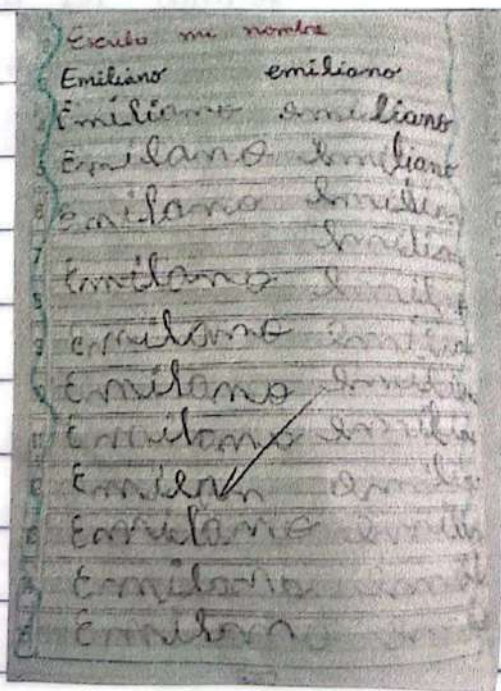 Escribo mi nombre
Emiliano emiliano
Emiliano emiliano
Emilano emiliano
Emilano emilian
emilian
Emilano emili
Emilano emilia
Emilano emilia
Emilano emilia
Emilan emili
Emilano emili
Emilano emil
Emilano